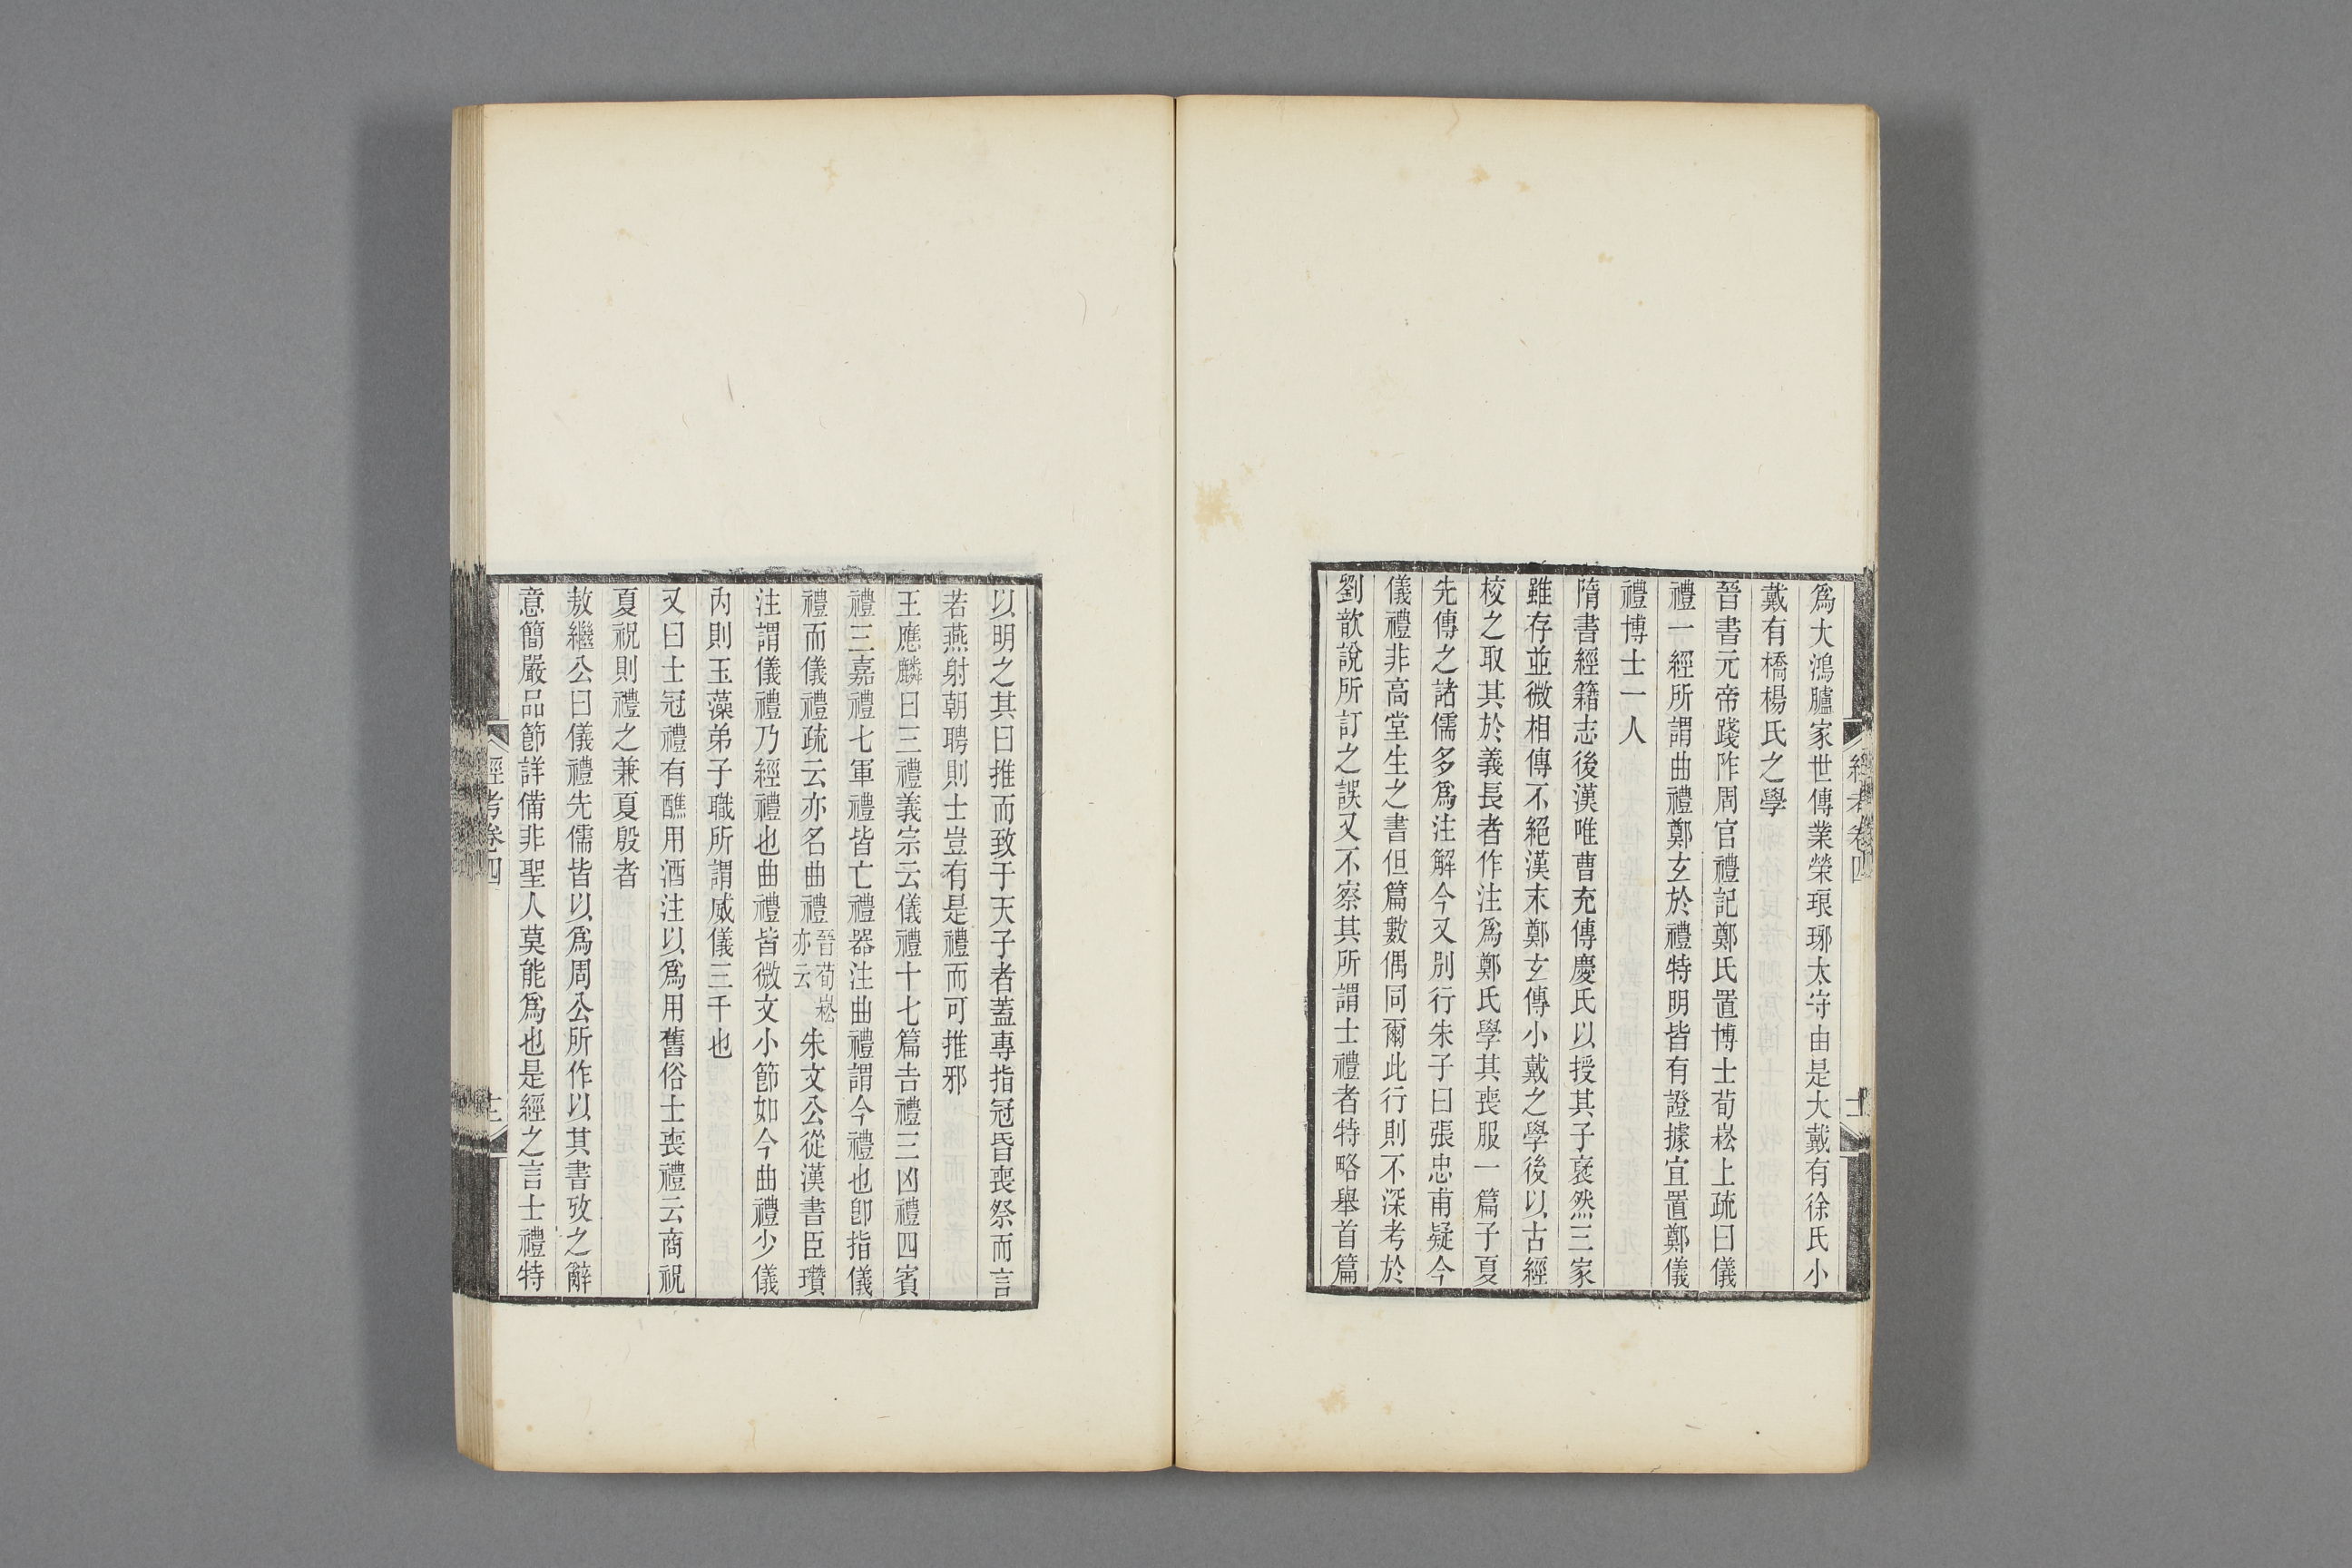 爲大鴻臚家世傳業榮琅琊太守由是大戴有徐氏小
戴有橋楊氏之學
晉書元帝踐阼周官禮記鄭氏置博士荀崧上疏曰儀
禮一經所謂曲禮鄭玄於禮特明皆有證據宜置鄭儀
禮博士一人
隋書經籍志後漢唯曹充傳慶氏以授其子襃然三家
雖存並微相傳不絕漢末鄭玄傳小戴之學後以古經
校之取其於義長者作注爲鄭氏學其喪服一篇子夏
先傳之諸儒多爲注解今又別行朱子曰張忠甫疑今
儀禮非高堂生之書但篇數偶同爾此行則不深考於
劉歆說所訂之誤又不察其所謂士禮者特略舉首篇
經考卷四
以明之其曰推而致于天子者蓋專指冠昏喪祭而言
若燕射朝聘則士豈有是禮而可推邪
王應麟曰三禮義宗云儀禮十七篇吉禮三凶禮四賓
禮三嘉禮七軍禮皆亡禮器注曲禮謂今禮也卽指儀
禮而儀禮疏云亦名曲禮晉荀崧亦云朱文公從漢書臣瓚
注謂儀禮乃經禮也曲禮皆微文小節如今曲禮少儀
內則玉藻弟子職所謂威儀三千也
又曰士冠禮有醮用酒注以爲用舊俗士喪禮云商祝
夏祝則禮之兼夏殷者
敖繼公曰儀禮先儒皆以爲周公所作以其書攷之辭
意簡嚴品節詳備非聖人莫能爲也是經之言士禮特
經考卷四